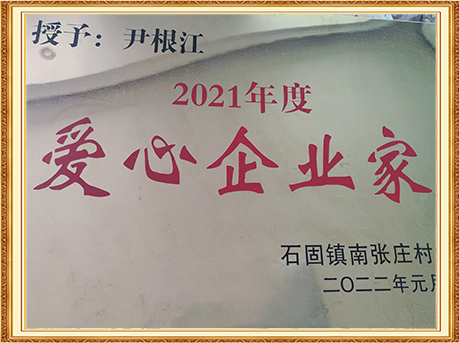 授予：尹根江
2021年度
爱心企业家
石固镇南张庄村
二〇二二年元月